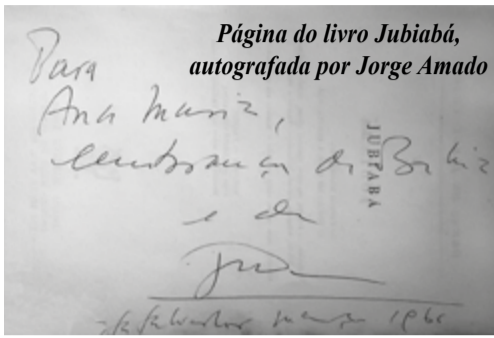 Página do livro Jubiabá,
autografada por Jorge Amado
Para
Ana Maria,
lembrança da Bahia
e do
JUBIABÁ
Salvador março